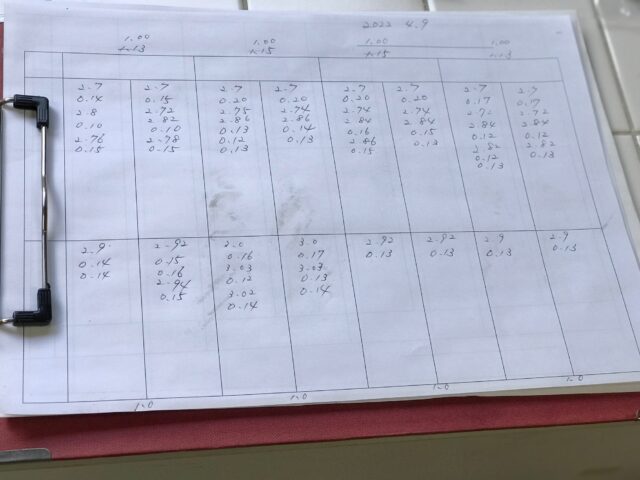 2022 4.9
1.00 1.00 1.00 1.00
1.13 1.15 1.15 1.13
2.7 2.7 2.7 2.7 2.7 2.7 2.7 2.7
0.14 0.15 0.20 0.20 0.20 0.20 0.17 0.17
2.8 2.72 2.75 2.74 2.74 2.74 2.72 2.72
0.10 2.82 2.86 2.86 2.84 2.84 2.84 2.84
2.76 0.10 0.13 0.14 0.16 0.15 0.12 0.12
0.15 2.78 0.12 0.13 2.86 0.13 2.82 2.82
0.15 0.13 0.15 0.12 0.13
0.13
2.9 2.92 3.0 3.0 2.92 2.92 2.9 2.9
0.14 0.15 0.16 0.17 0.13 0.13 0.13 0.13
0.14 0.16 3.03 3.03
2.94 0.12 0.13
0.15 3.02 0.14
0.14
1.0 1.0 1.0 1.0